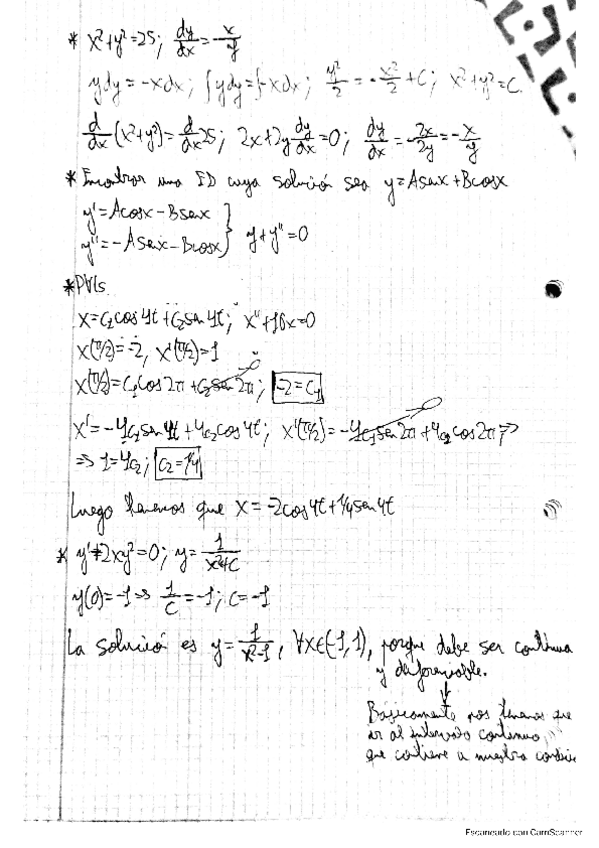 * x²+y²=25; dy/dx = -x/y
ydy = -xdx; ∫ydy = ∫-xdx; y²/2 = -x²/2 + C; x²+y²=C.
d/dx (x²+y²) = d/dx 25; 2x+2y dy/dx = 0; dy/dx = -2x/2y = -x/y
* Encontrar una ED cuya solución sea y=Asenx+Bcosx
y'=Acosx-Bsenx
y''=-Asenx-Bcosx } y+y''=0
*PVIs
x=C₁cos4t+C₂sen4t; x''+16x=0
x(π/2)=-2, x'(π/2)=1
x(π/2)=C₁cos2π+C₂sen2π; -2=C₁
x'=-4C₁sen4t+4C₂cos4t; x'(π/2)=-4C₁sen2π+4C₂cos2π ⇒
⇒ 1=4C₂; C₂=1/4
Luego tenemos que x=-2cos4t+1/4sen4t
* y'+2xy²=0; y=1/(x²+C)
y(0)=-1 ⇒ 1/C=-1; C=-1
La solución es y=1/(x²-1), ∀x∈(-1,1), porque debe ser continua
y diferenciable.
↓
Básicamente nos tenemos que
ir al intervalo continuo
que contiene a nuestra
Escaneado con CamScanner